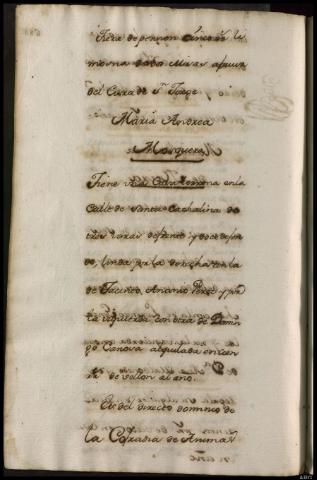 de pension cinco rs. li
mosna de dos Misas a favor
del Cura de Sn. Jorge
Maria Andrea
Mosquera
Tiene una Casa terrena en la
Calle de Santa Cathalina de
tres varas de frente y doce de fon
do, linda por la derecha con la
de Jacinto Antonio Perez y por
la izquierda con otra de Domin
go Canova alquilada en cien
rs. de vellon al año.
Es del directo dominio de
la Cofradia de Animas